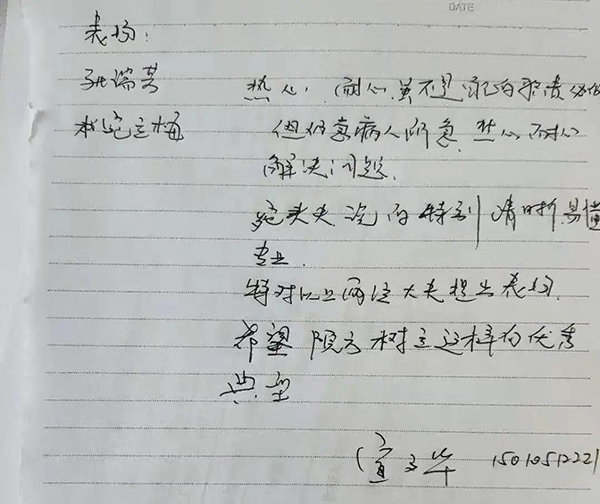 DATE
表扬:
孙瑞芳 热心,耐心虽不是自己的职责
立梅 但仍急病人所急.热心耐心
解决问题.
大夫说的特别清晰易懂
专业.
特对以上两位大夫提出表扬.
希望院方树立这样的优秀
典型
宣文华 15010512221